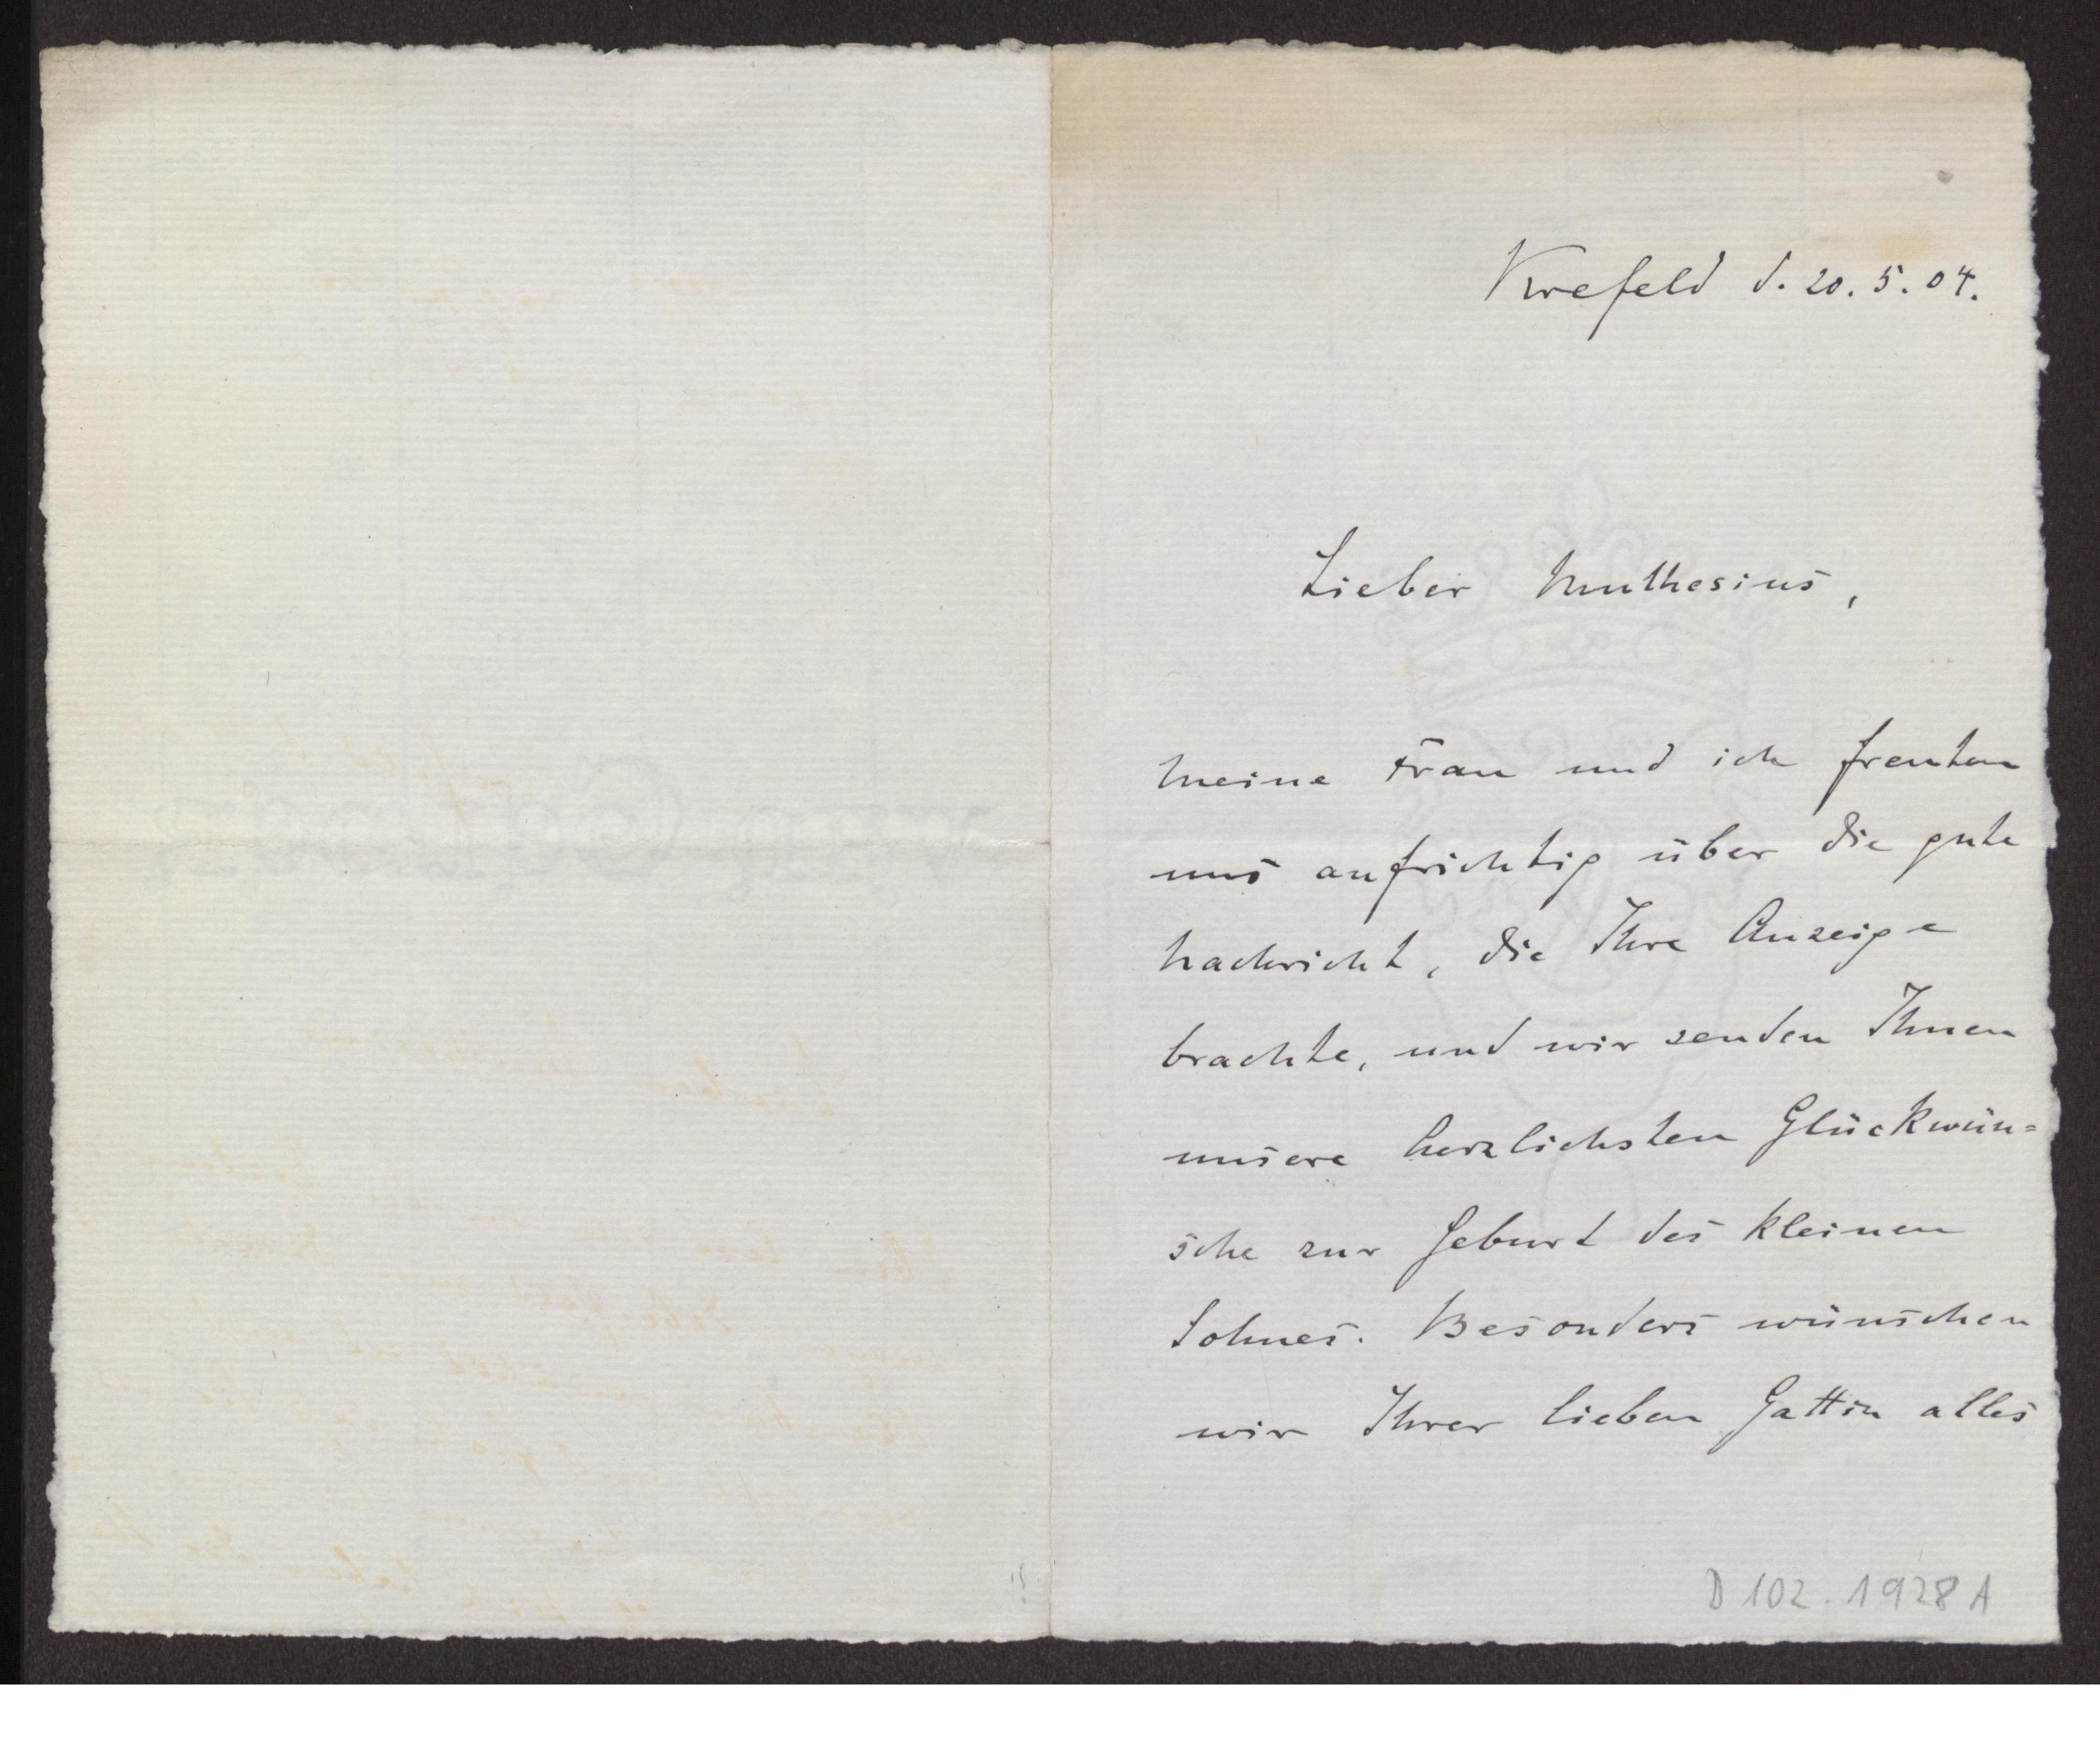 Krefeld d. 20. 5. 04.
Lieber Muthesius,
Meine Frau und ich freuten
uns aufrichtig über die gute
Nachricht, die Ihre Anzeige
brachte, und wir senden Ihnen
unsere herzlichsten Glückwün=
sche zur Geburt des kleinen
Sohnes. Besonders wünschen
wir Ihrer lieben Gattin alles
D 102. 1928 A